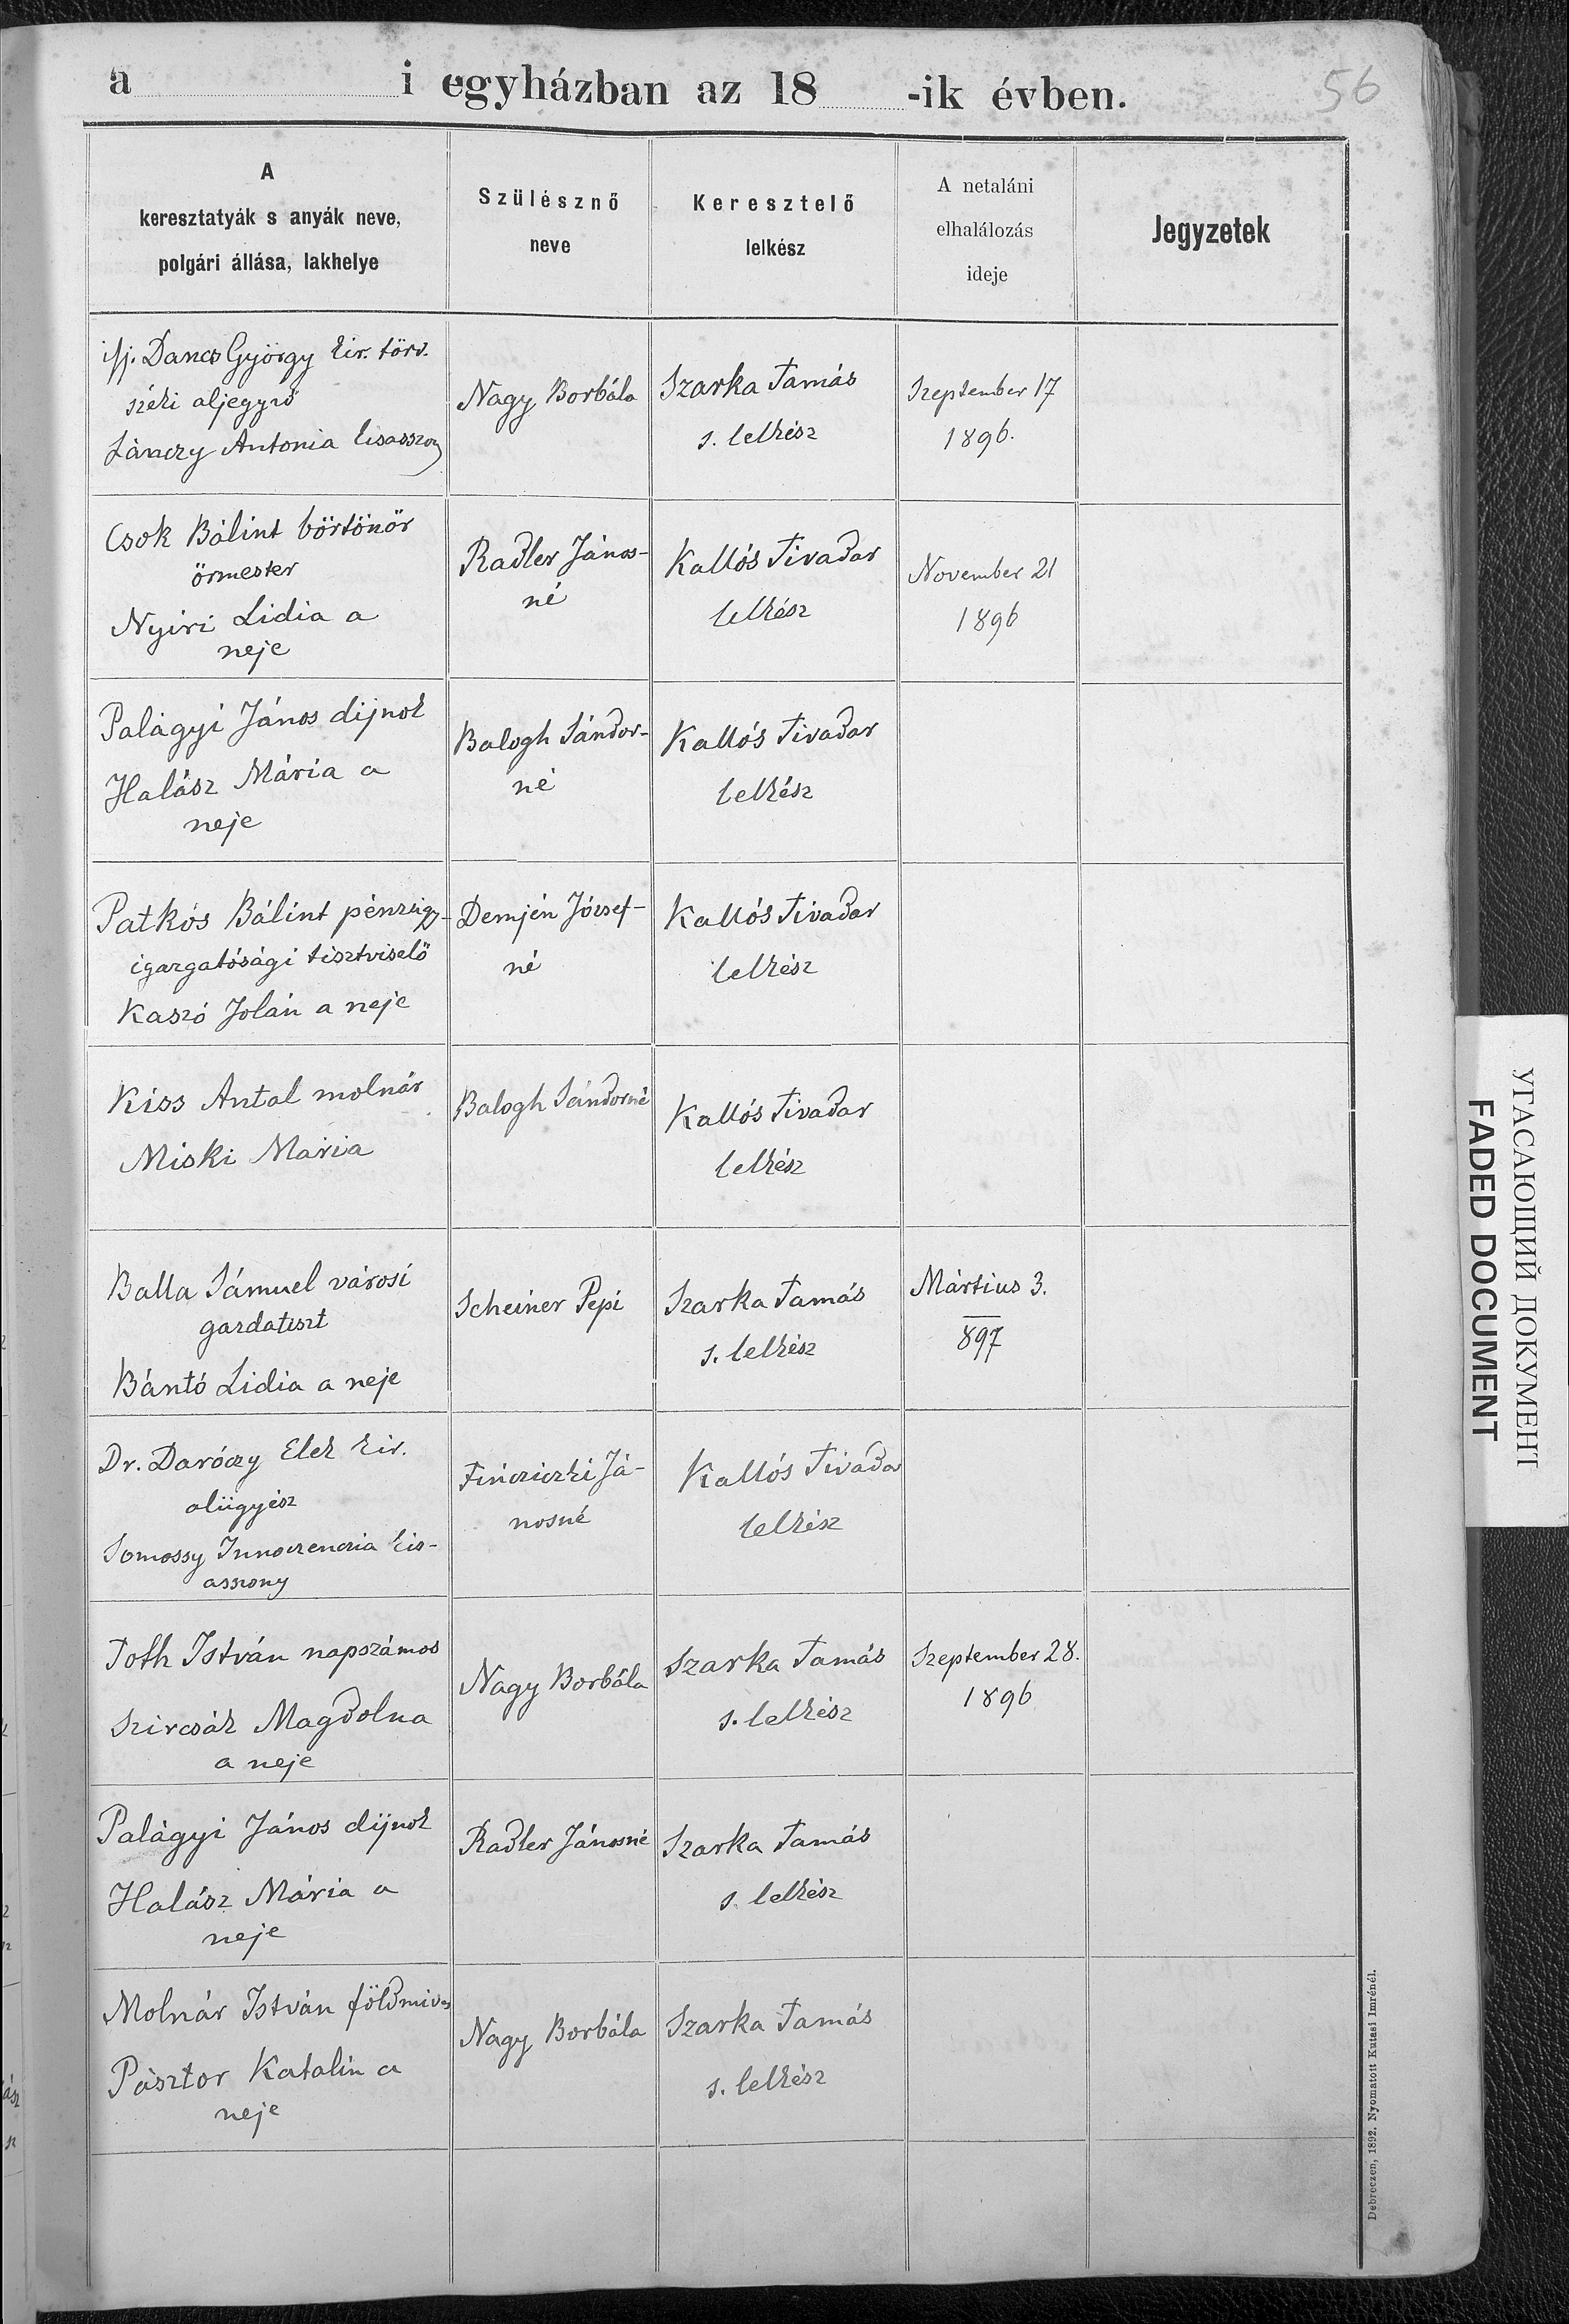 a i egyházban az 18 -ik évben.
56
A
keresztatyák s anyák neve,
polgári állása, lakhelye
Szülésznő
neve
Keresztelő
lelkész
A netaláni
elhalálozás
ideje
Jegyzetek
ifj. Dancs György kir. törv.
széki aljegyző
Lánczy Antonia kisasszony
Nagy Borbála
Szarka Tamás
s. lelkész
Szeptember 17
1896.
Csok Bálint börtönőr
őrmester
Nyiri Lidia a
neje
Radler János-
né
Kallós Tivadar
lelkész
November 21
1896
Palágyi János dijnok
Halász Mária a
neje
Balogh Sándor-
né
Kallós Tivadar
lelkész
Patkós Bálint pénzügy-
igazgatósági tisztviselő
Kaszó Jolán a neje
Demjén József-
né
Kallós Tivadar
lelkész
Kiss Antal molnár
Miski Maria
Balogh Sándorné
Kallós Tivadar
lelkész
Balla Sámuel városi
gazdatiszt
Bántó Lidia a neje
Scheiner Pepi
Szarka Tamás
s. lelkész
Mártius 3.
897
Dr. Daróczy Elek kir.
alügyész
Somossy Innoczenczia kis-
asszony
Fincziczki Já-
nosné
Kallós Tivadar
lelkész
Toth István napszámos
Szircsák Magdolna
a neje
Nagy Borbála
Szarka Tamás
s. lelkész
Szeptember 28.
1896
Palágyi János dijnok
Halász Mária a
neje
Radler Jánosné
Szarka Tamás
s. lelkész
Molnár István földmives
Pásztor Katalin a
neje
Nagy Borbála
Szarka Tamás
s. lelkész
Debreczen, 1892. Nyomatott Kutasi Imrénél.
УГАСАЮЩИЙ ДОКУМЕНТ
FADED DOCUMENT